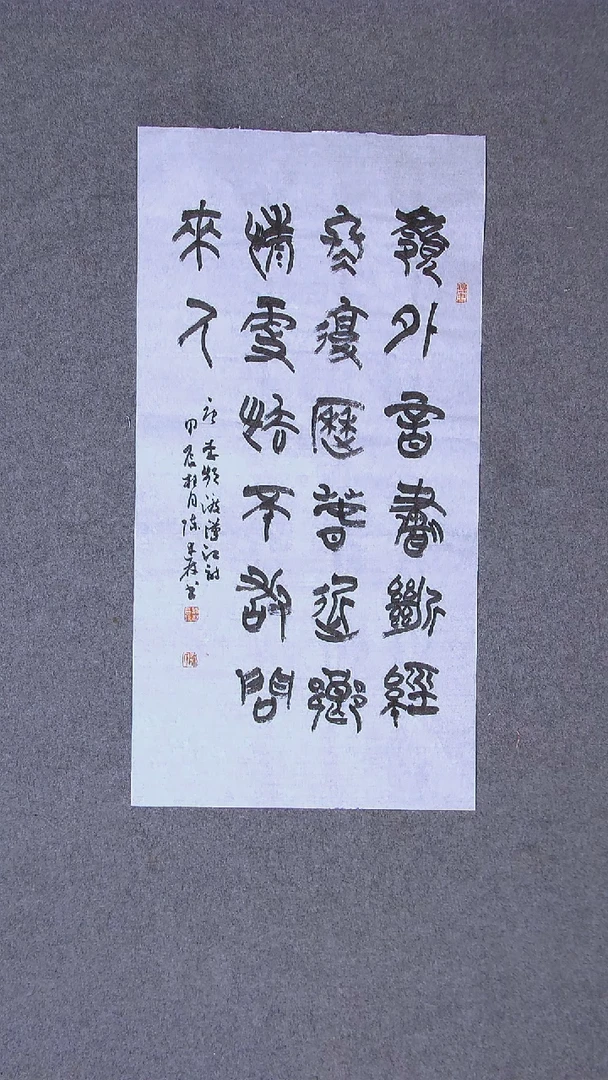 嶺外音書斷經
冬復歷春近鄉
情更怯不敢問
來人
唐李頻渡漢江詩
甲辰桂月陳書